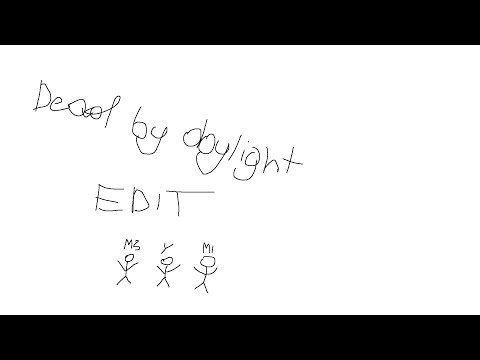 Dead by daylight
EDIT
M3 Y M1